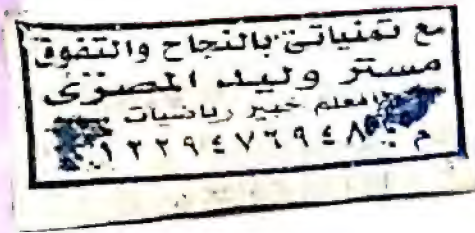 مع تمنياتى بالنجاح والتفوق
مستر وليد المصرى
معلم خبير رياضيات
م